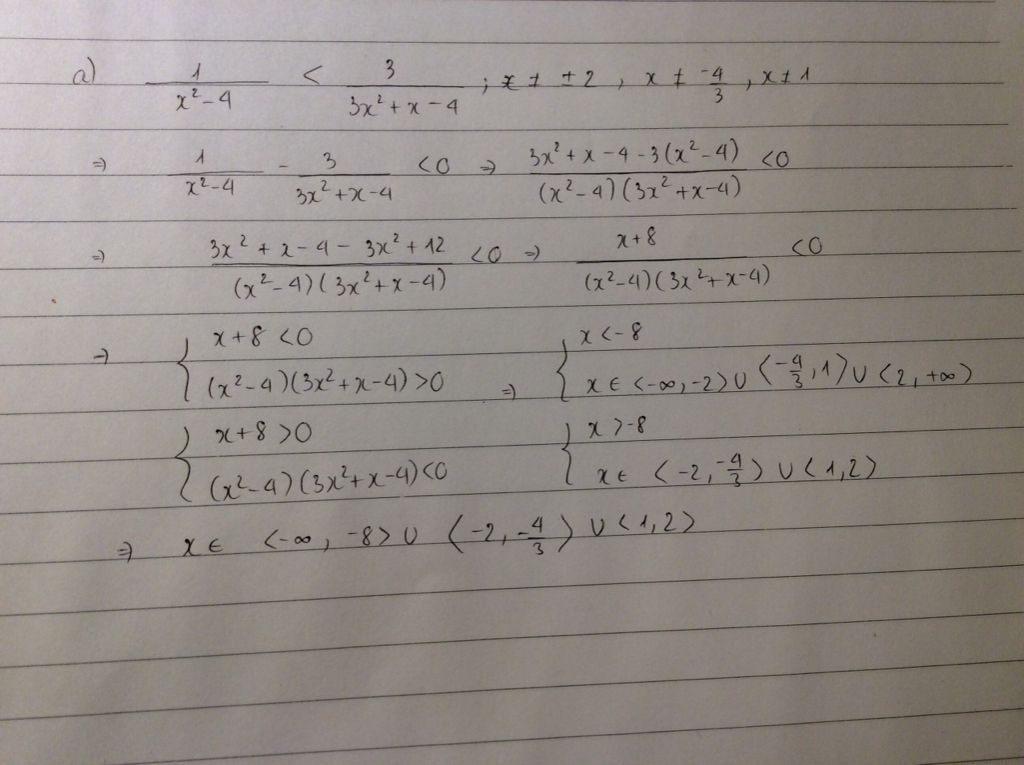 a) 1/(x²-4) < 3/(3x²+x-4) ; x ≠ ±2 , x ≠ -4/3 , x ≠ 1
⇒ 1/(x²-4) - 3/(3x²+x-4) <0 ⇒ (3x²+x-4-3(x²-4))/((x²-4)(3x²+x-4)) <0
⇒ (3x²+x-4-3x²+12)/((x²-4)(3x²+x-4)) <0 ⇒ (x+8)/((x²-4)(3x²+x-4)) <0
⇒ { x+8 <0 { x <-8
(x²-4)(3x²+x-4) >0 ⇒ x ∈ <-∞, -2> ∪ <-4/3, 1> ∪ <2, +∞>
{ x+8 >0 { x >-8
(x²-4)(3x²+x-4) <0 x ∈ <-2, -4/3> ∪ <1,2>
⇒ x ∈ <-∞, -8> ∪ <-2, -4/3> ∪ <1,2>